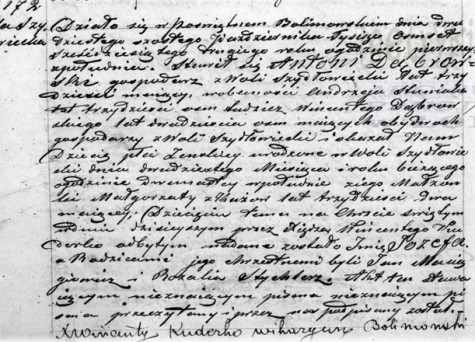 173.
Działo się w Poświętnem Bolimowskiem dnia dwu
dziestego szóstego Października Tysiąc ośmset
sześćdziesiątego drugiego roku o godzinie pierwszej
z południa. Stawił się Antoni Dąbrow-
ski gospodarz z Woli Szydłowieckiej lat trzy
dzieści mający, w obecności Andrzeja
lat trzydzieści osm tudzież Wincentego Dąbrow
skiego lat dwadzieścia osm mających obydwóch
gospodarzy z Woli Szydłowieckiej i okazał Nam
Dziecię płci Żeńskiej urodzone w Woli Szydłowie
ckiej dnia dwudziestego Miesiąca i roku bieżącego
o godzinie dwunastej w południe z jego Małżon
ki Małgorzaty z lat trzydzieści dwa
mającej, Dziecięciu temu na Chrzcie świętym
w dniu dzisiejszym przez Księdza Wincentego Ku
derko odbytym nadane zostało Imię Józefa.
a Rodzicami jego chrzestnemi byli Jan
i Rozalia Akt ten stawa
jącym nieznającym pisma nieznającym pi
sma przeczytany i przez nas podpisany został.
X Wincenty Kuderko wikaryusz Bolimowski